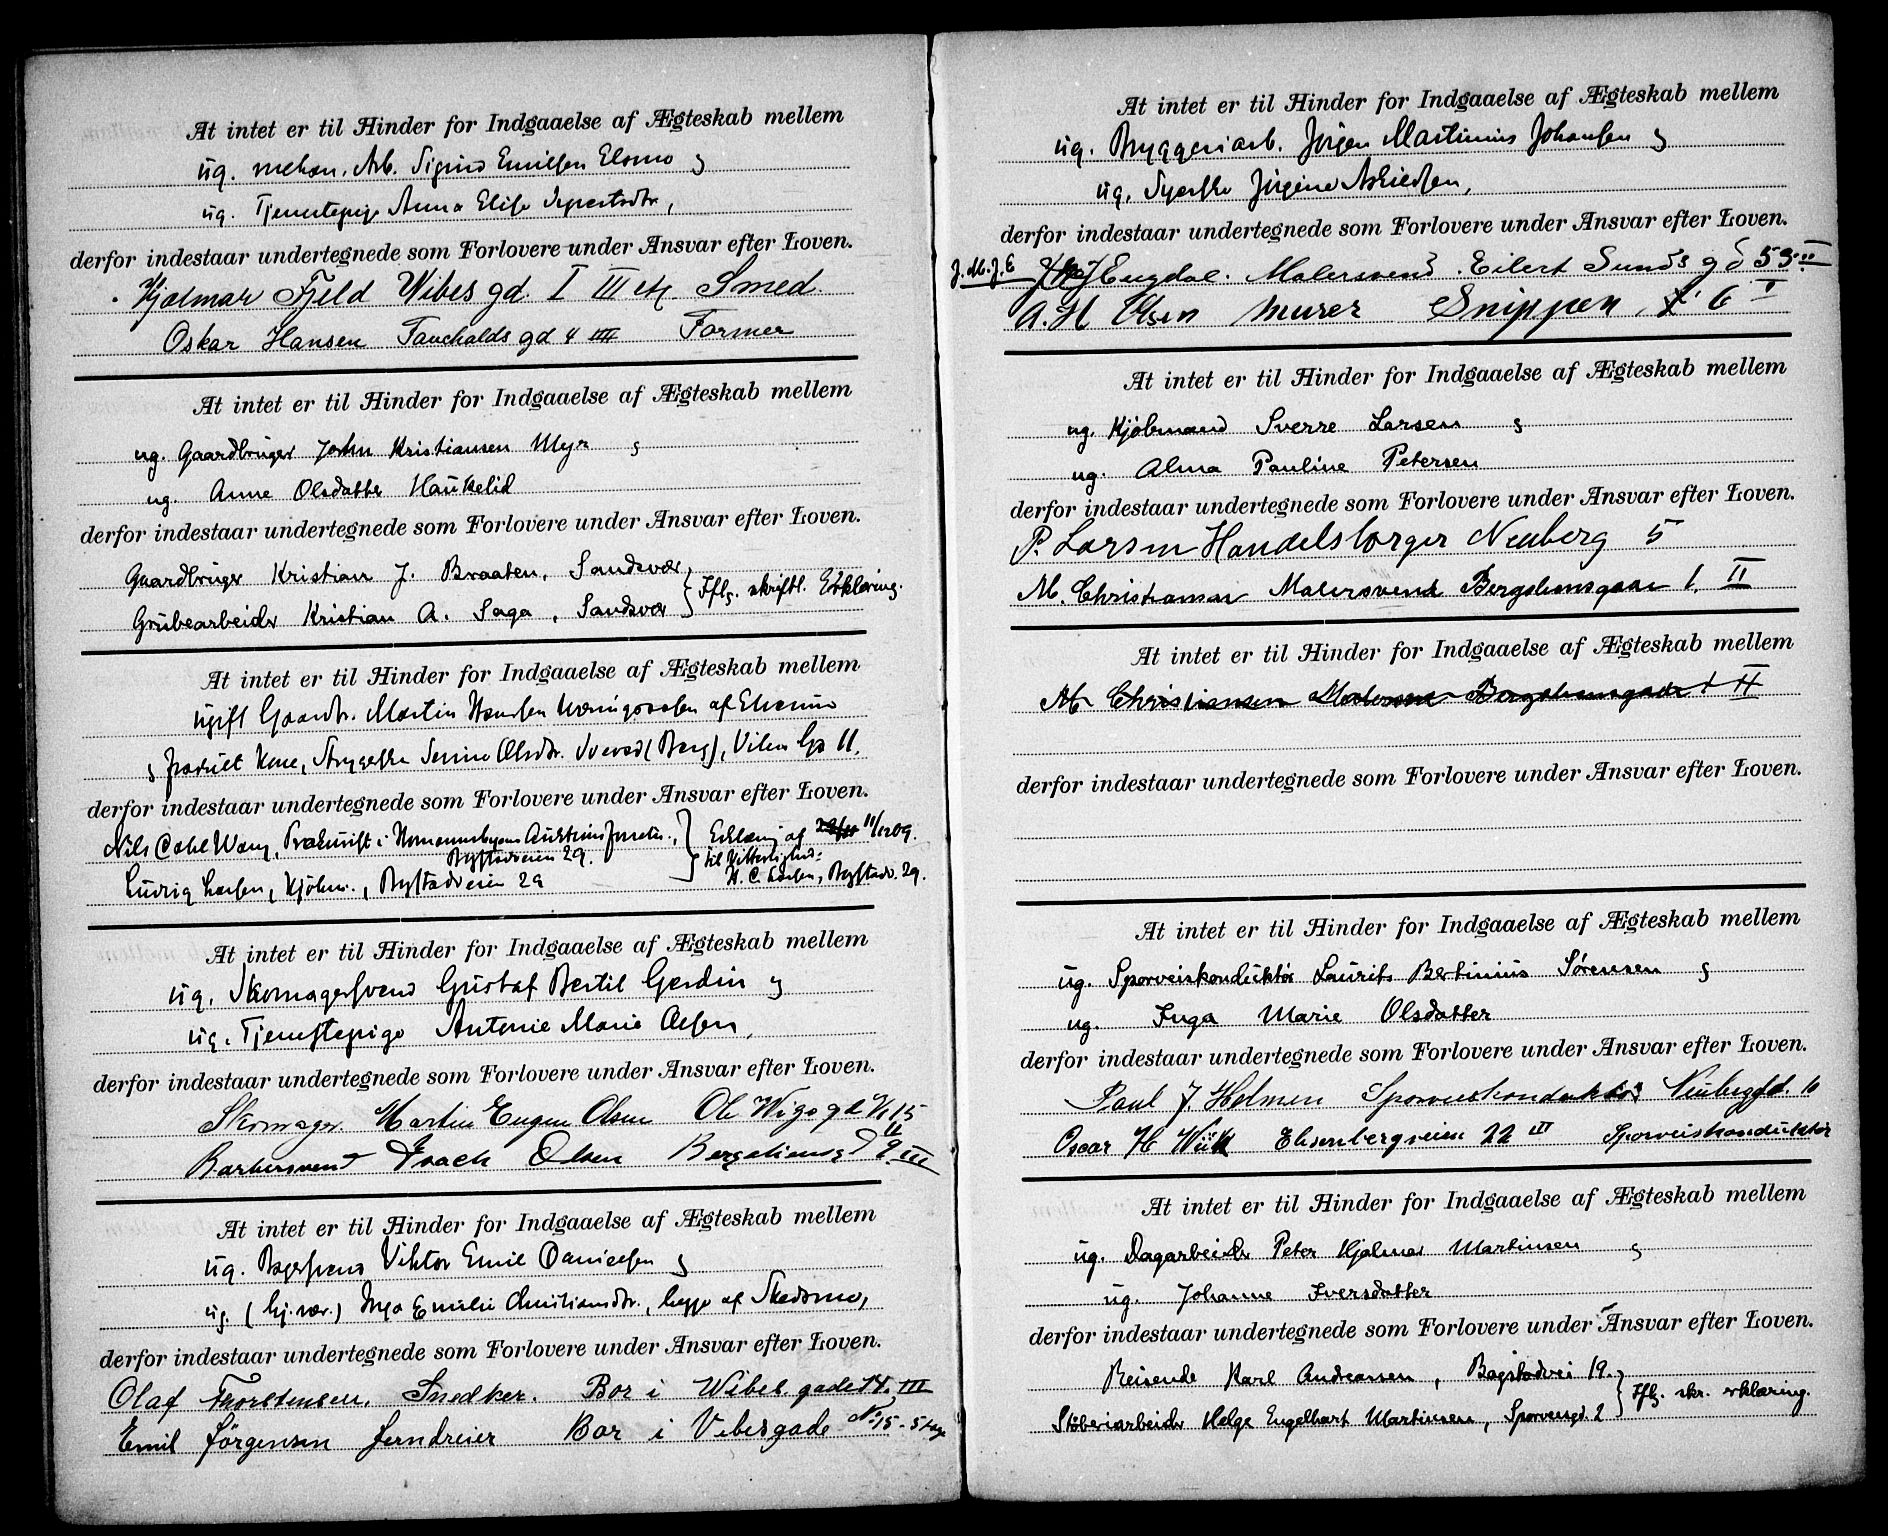 At intet er til Hinder for Indgaaelse af Ægteskab mellem
ug. mekan. Arb. Sigurd Emilsen Elsmo og
ug. Tjenestepige Anna Elise
derfor indestaar undertegnede som Forlovere under Ansvar efter Loven.
Hjalmar Fjeld Wibes gd. I III et. Smed.
Oskar Hansen Fauchalds gd 4 III Former
At intet er til Hinder for Indgaaelse af Ægteskab mellem
ug. Gaardbruger John Kristiansen Myr og
ug. Anne Olsdatter Haukelid
derfor indestaar undertegnede som Forlovere under Ansvar efter Loven.
Gaardbruger Kristian J. Braaten, Sandsvær,
Grubearbeider Kristian A. Saga, Sandsvær } Iflg. skriftl. Erklæring.
At intet er til Hinder for Indgaaelse af Ægteskab mellem
ugift Gaardbr. Martin Hansen af Elverum
og fraskilt Kone, Strygerske Serine Olsdtr. (Berg), Vibes Gd 11.
derfor indestaar undertegnede som Forlovere under Ansvar efter Loven.
Nils Carl Wang, i Homannsbyens Auktionsforretn., } Erklæring af 11/12 09.
Bogstadveien 29. til Vitterlighed:
Ludvig Larsen, Kjøbm., Bogstadveien 29 H. C. Larsen, Bogstadv. 29.
At intet er til Hinder for Indgaaelse af Ægteskab mellem
ug. Skomagersvend Gustaf Bertil Gerdin og
ug. Tjenestepige Antonie Marie Olsen,
derfor indestaar undertegnede som Forlovere under Ansvar efter Loven.
Skomager Martin Eugen Olsen Ole Wigs gd 15 II
Barbersvend Isach Olsen Bergsliensgd 9 III
At intet er til Hinder for Indgaaelse af Ægteskab mellem
ug. Bagersvend Viktor Emil Danielsen og
ug. (hj.vær.) Inga Emilie Christiansdtr., begge af Skedsmo,
derfor indestaar undertegnede som Forlovere under Ansvar efter Loven.
Olaf Thorstensen. Snedker. Bor i Wibes gade 14. III
Emil Jörgensen Jerndreier Bor i Vibesgade No 15 - 5 tage
At intet er til Hinder for Indgaaelse af Ægteskab mellem
ug. Bryggeriarb. Jørgen Martinius Johansen og
ug. Syerske Jørgine Askildsen,
derfor indestaar undertegnede som Forlovere under Ansvar efter Loven.
J.M.J.E Engdal. Malersvend. Eilert Sunds gd 53 II
A. H Olsen Murer Snippen 6 I
At intet er til Hinder for Indgaaelse af Ægteskab mellem
ug. Kjøbmand Sverre Larsen og
ug. Alma Pauline Petersen
derfor indestaar undertegnede som Forlovere under Ansvar efter Loven.
P. Larsen Handelsborger Neuberg 5
M. Christiansen Malersvend Bergsliensgade 1. II
At intet er til Hinder for Indgaaelse af Ægteskab mellem
M. Christiansen Malersvend Bergsliensgade 1 II
derfor indestaar undertegnede som Forlovere under Ansvar efter Loven.
At intet er til Hinder for Indgaaelse af Ægteskab mellem
ug. Sporveiskonduktør Laurits Bertinius Sørensen og
ug. Inga Marie Olsdatter
derfor indestaar undertegnede som Forlovere under Ansvar efter Loven.
Paul J. Holmen Sporveiskonduktør Neuberggd. 16
Oscar H Wiik Eisenbergveien 22 III Sporveiskonduktør
At intet er til Hinder for Indgaaelse af Ægteskab mellem
ug. Dagarbeider Peter Hjalmar Martinsen og
ug. Johanne Iversdatter
derfor indestaar undertegnede som Forlovere under Ansvar efter Loven.
Reisende Karl Andreassen, Bogstadvei 19.
Støberiarbeider Helge Engelhart Martinsen, Sporveisgd. 2 } Iflg. skr. erklæring.